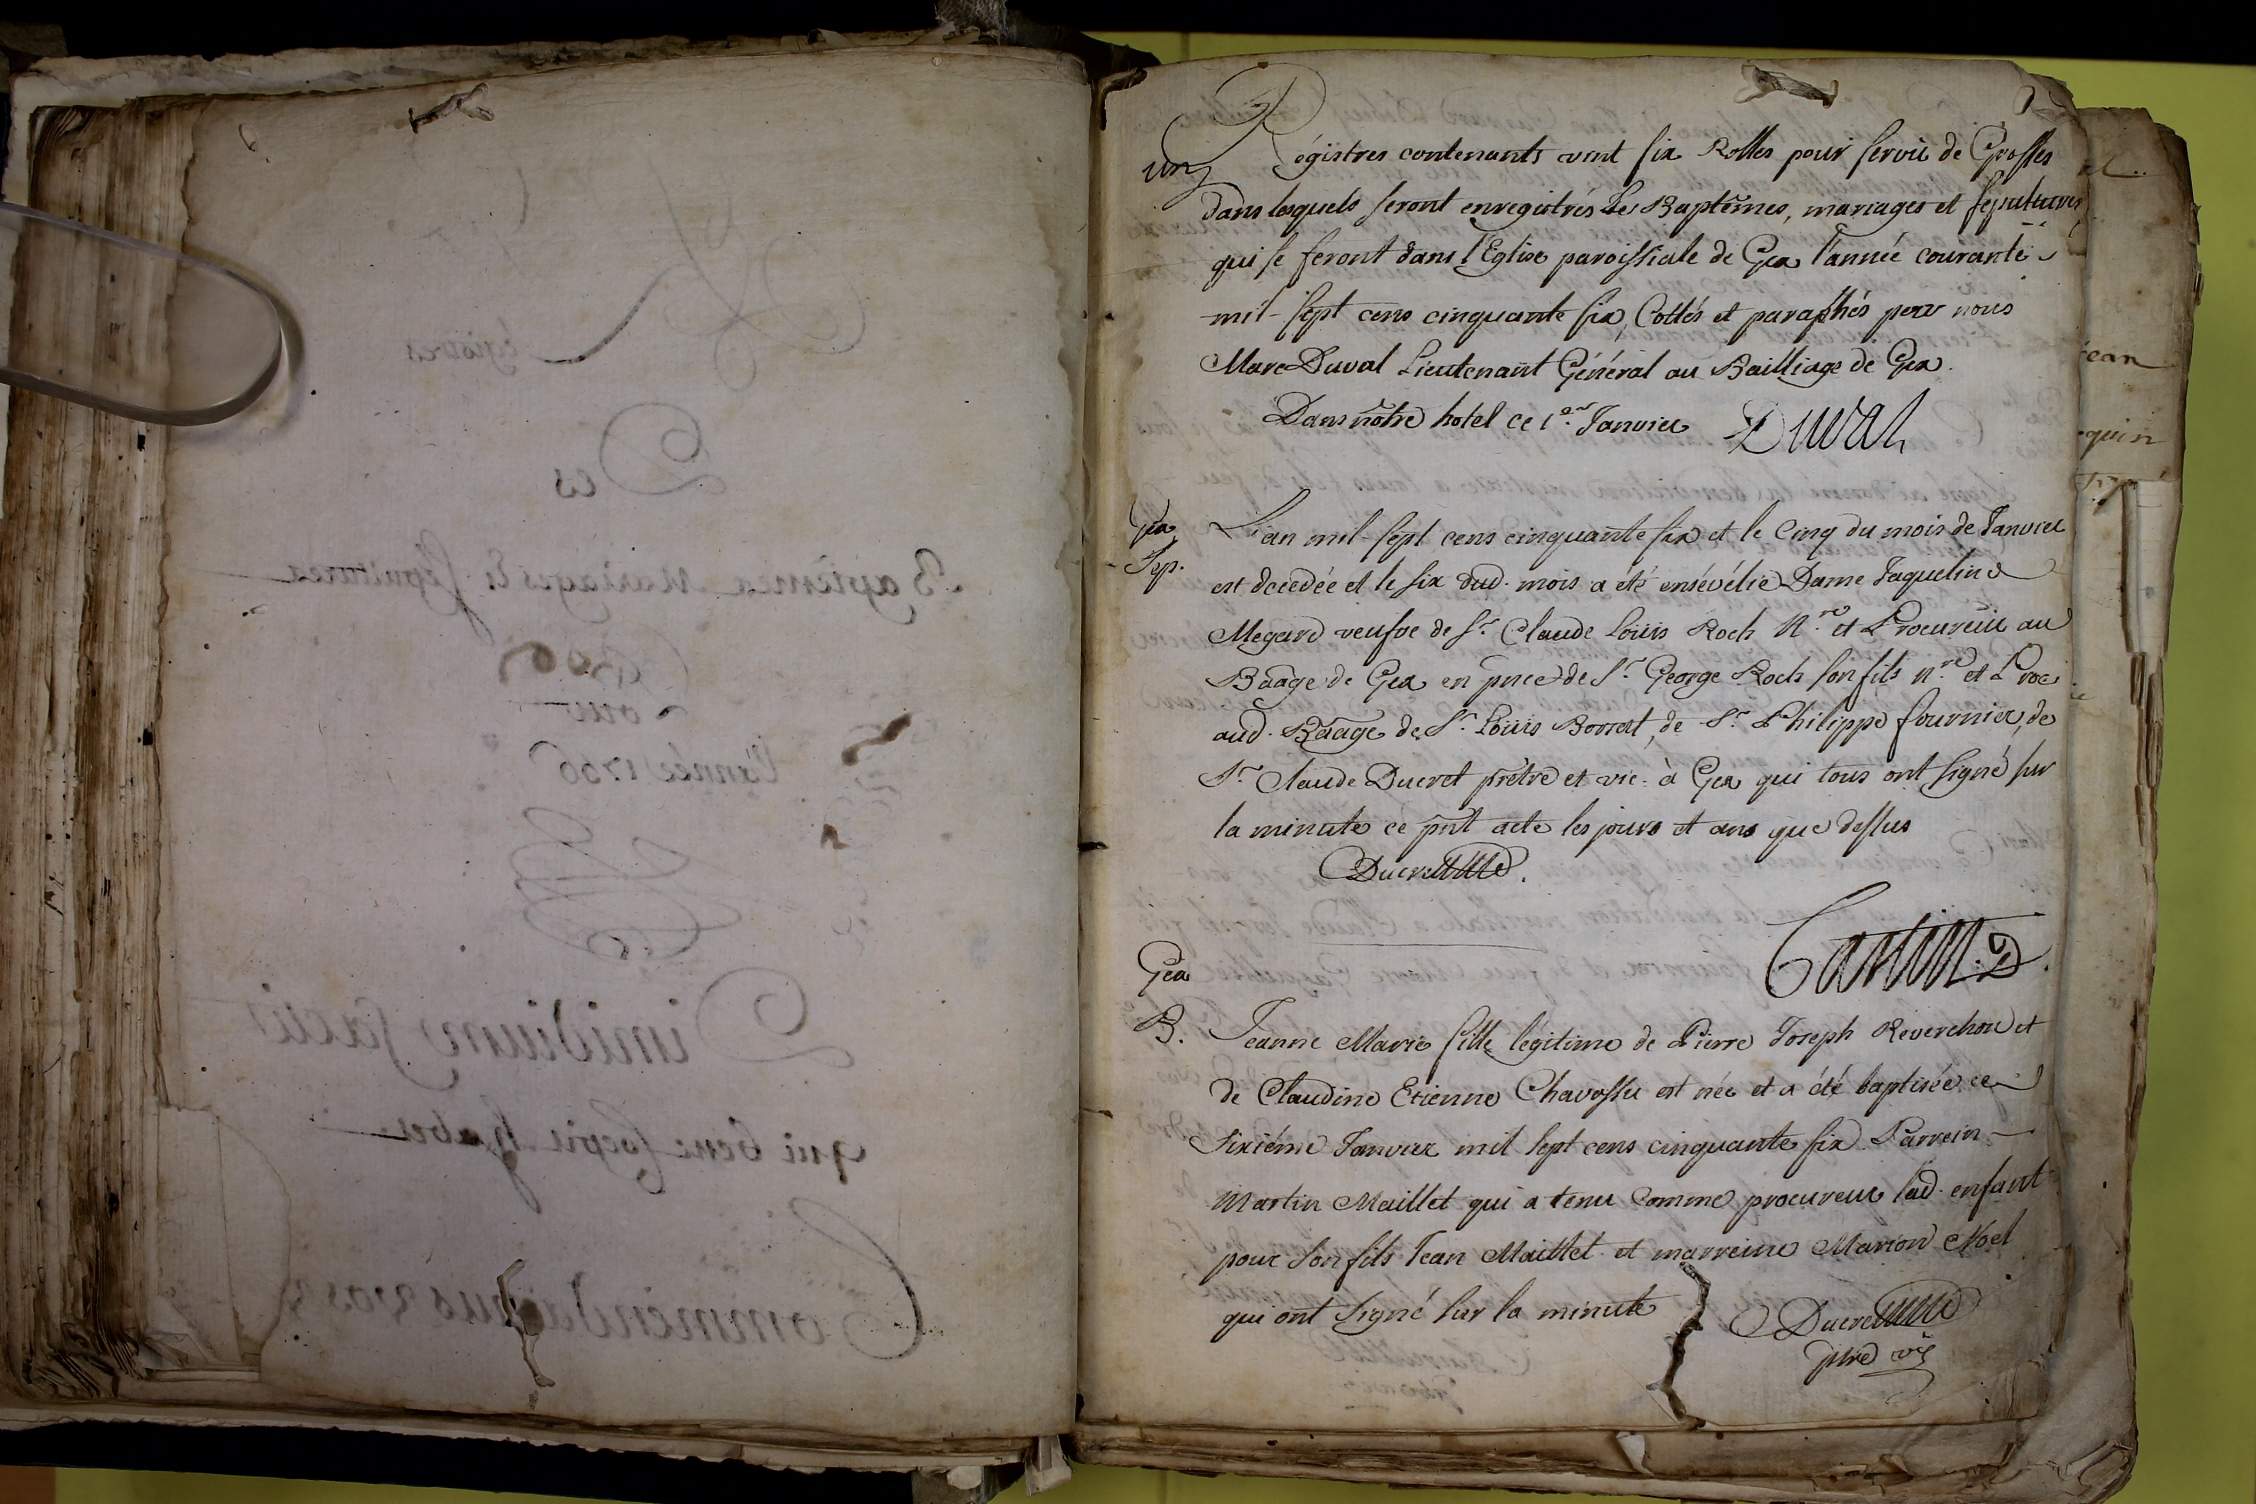 Régistres
Des
Baptêmes Mariages & Sepultures
Pour
L'année 1756
Dimidium facti
qui bene Coepit habet
Commendamus vos
un
Régistres contenants vint six Rolles pour servir de Grosses
dans lesquels seront enregistrés Les Baptêmes, mariages et sepultures
qui se feront dans l'Eglise paroissiale de Gex l'année courante
mil-sept cens cinquante six, Cottés et paraphés par nous
Marc Duval Lieutenant Général au Bailliage de Gex.
Dans nôtre hotel ce 1.er Janvier Duval
Gex
Sep.
L'an mil-sept cens cinquante six et le Cinq du mois de Janvier
est decedée et le six dud. mois a eté ensévélie Dame Jaqueline
Megard veufve de Sr. Claude Loüis Roch N.re et Procureur au
Baage de Gex en pnce de Sr. George Roch son fils n.re et Proc.
aud. Baage de Sr. Loüis Borsat, de Sr. Philippe fournier, de
Sr. Claude Ducret prêtre et vic. à Gex qui tous ont signé sur
la minute ce pnt acte les jours et ans que dessus
Ducret
Gex
B.
Jeanne Marie fille legitime de Pierre Joseph Reverchon et
de Claudine Etienne Chavassu est née et a été baptisée ce
sixiéme Janvier mil sept cens cinquante six Parrein
Martin Maillet qui a tenu Comme procureur lad. enfant
pour son fils Jean Maillet et marreine Marion Noel
qui ont signé sur la minute
Ducret
ptre vic
ean
quin